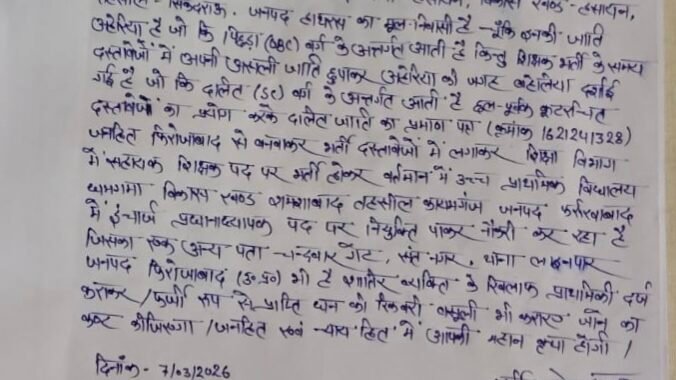 तहसील - सिकंदराऊ. जनपद हाथरस का मूल निवासी है - चूँकि इनकी जाति
अहेरिया है जो कि पिछड़ा (OBC) वर्ग के अन्तर्गत आती है किन्तु शिक्षक भर्ती के समय
दस्तावेजों में अपनी असली जाति छुपाकर अहेरिया की जगह बहेलिया दर्शाई
गई है जो कि दलित (SC) वर्ग के अन्तर्गत आती है छल-पूर्वक कूटरचित
दस्तावेजों का प्रयोग करके दलित जाति का प्रमाण पत्र (क्रमांक 1621241328)
जनहित फिरोजाबाद से बनवाकर भर्ती दस्तावेजों में लगाकर शिक्षा विभाग
में सहायक शिक्षक पद पर भर्ती होकर वर्तमान में उच्च प्राथमिक विद्यालय
विकास खण्ड शमशाबाद तहसील कायमगंज जनपद फर्रुखाबाद
में इंचार्ज प्रधानाध्यापक पद पर नियुक्ति पाकर नौकरी कर रहा है
जिसका एक अन्य पता - चन्दवार गेट, संत नगर, थाना
जनपद फिरोजाबाद (उ.प्र०) भी है शातिर व्यक्ति के खिलाफ प्राथमिकी दर्ज
कराकर / फर्जी रूप से प्राप्ति धन की रिकवरी वसूली भी कराए जाने का
कष्ट कीजिएगा / जनहित एवं न्याय हित में आपकी महान कृपा होगी /
दिनांक - 7/03/2026